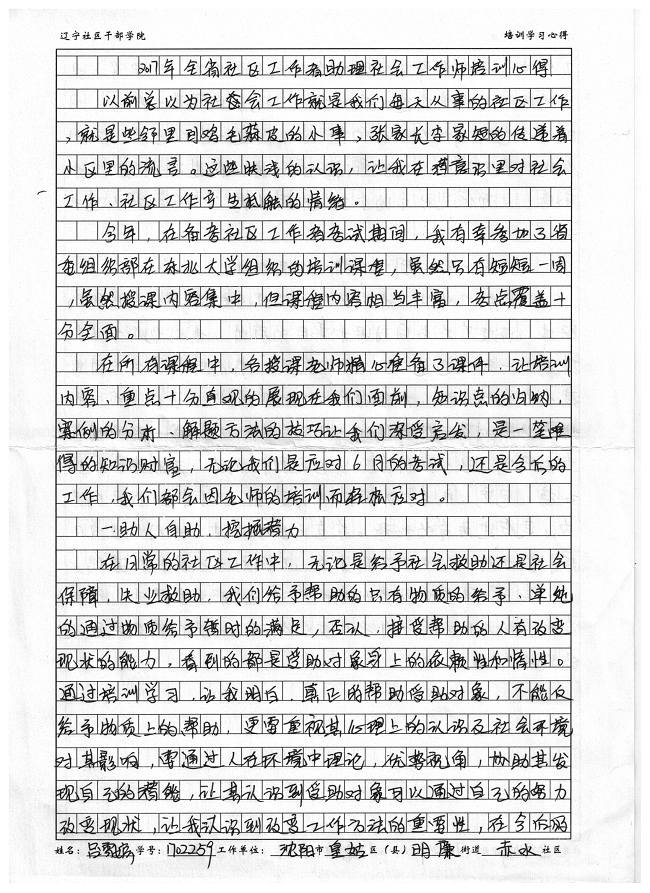 辽宁社区干部学院 培训学习心得
2017年全省社区工作者助理社会工作师培训心得
以前总以为社会工作就是我们每天从事的社区工作
，就是些邻里间鸡毛蒜皮的小事，张家长李家短的传递着
小区里的流言。这些肤浅的认识，让我在潜意识里对社会
工作、社区工作产生抵触的情绪。
今年，在备考社区工作者考试期间，我有幸参加了省
委组织部在东北大学组织的培训课程，虽然只有短短一周
，虽然授课内容集中，但课程内容相当丰富，考点覆盖十
分全面。
在所有课程中，各授课老师精心准备了课件，让培训
内容、重点十分直观的展现在我们面前，知识点的归纳，
案例的分析、解题方法的技巧让我们深受启发，是一笔难
得的知识财富，无论我们是应对6月的考试，还是今后的
工作，我们都会因老师的培训而轻松应对。
一.助人自助、挖掘潜力
在日常的社区工作中，无论是给予社会救助还是社会
保障，失业救助，我们给予帮助的只有物质的给予，单纯
的通过物质给予暂时的满足，否认，接受帮助的人有改变
现状的能力，看到的都是受助对象身上的依赖性和惰性。
通过培训学习，让我明白，真正的帮助受助对象，不能仅
给予物质上的帮助，更要重视其心理上的认识及社会环境
对其影响，要通过人在环境中理论，优势视角，协助其发
现自己的潜能，让其认识到受助对象可以通过自己的努力
改变现状，让我认识到改变工作方法的重要性，在今后的
姓名： 学号：1702259 工作单位：沈阳市皇姑区（县）明廉街道 赤水社区